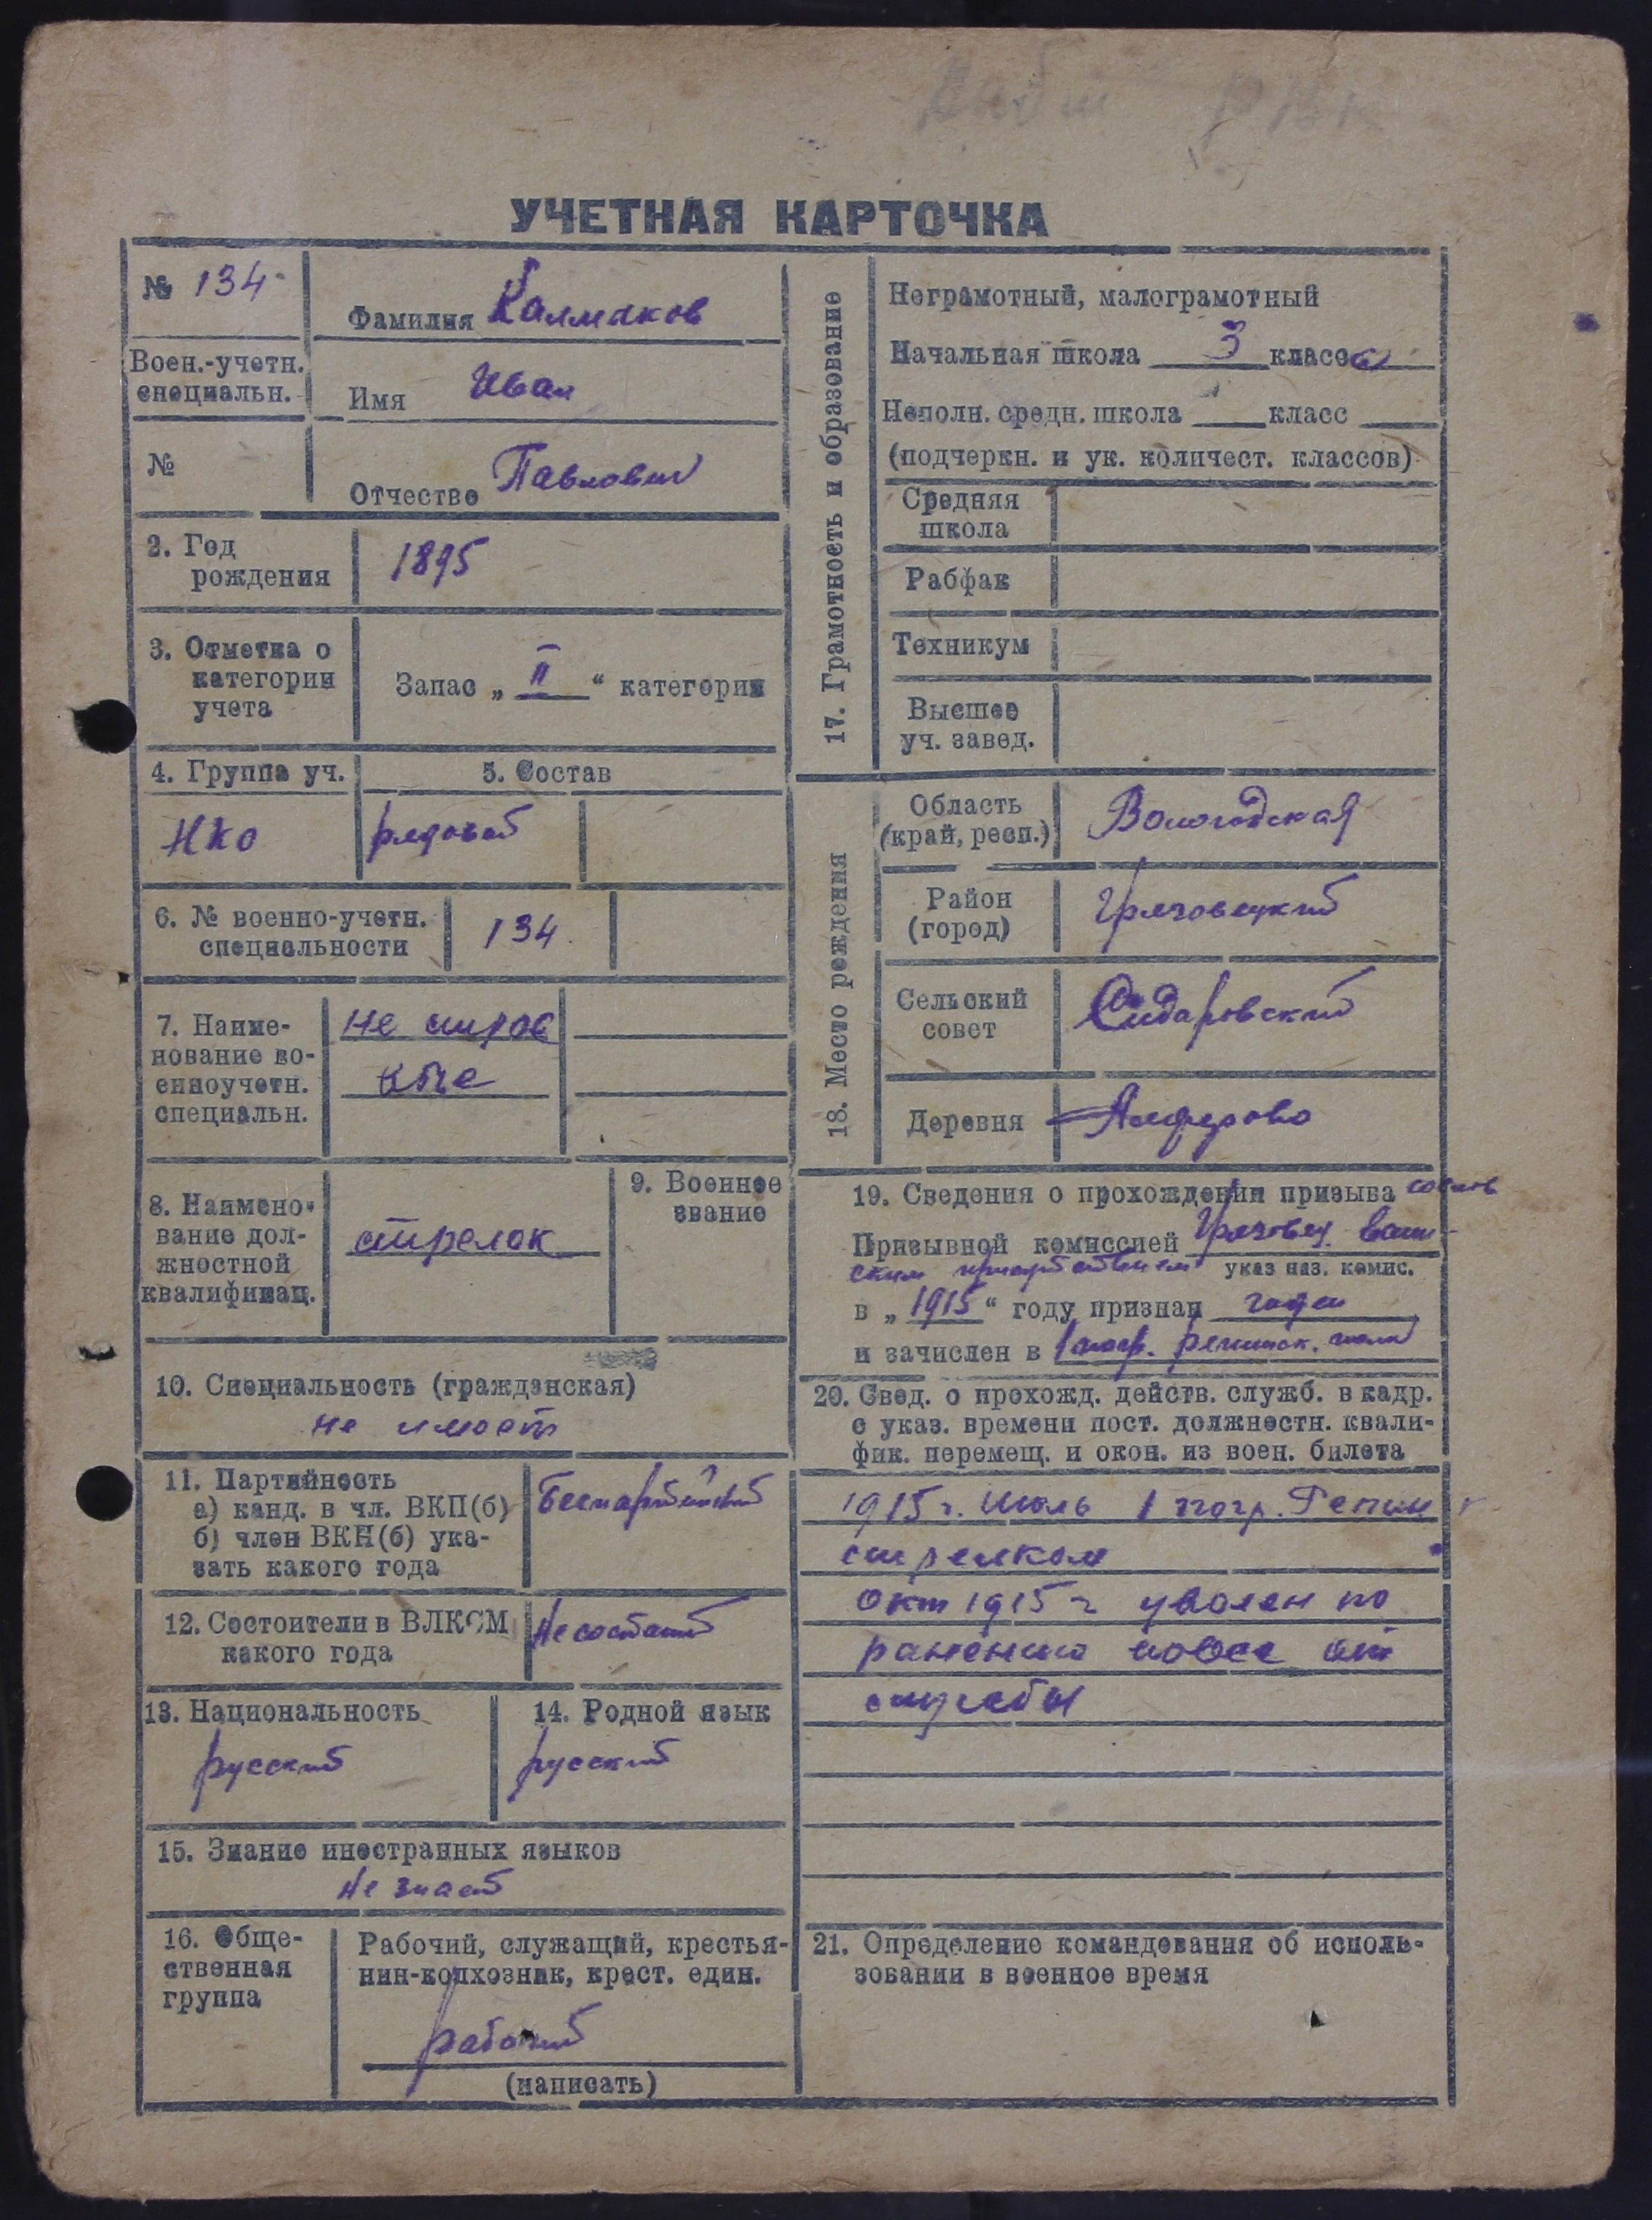 УЧЕТНАЯ КАРТОЧКА
№ 134
Фамилия Калмаков
Воен.-учетн.
специальн.
Имя Иван
№
Отчество Павлович
2. Год
рождения
1895
3. Отметка о
категории
учета
Запас „ II “ категории
4. Группа уч.
5. Состав
НКО
рядовой
6. № военно-учетн.
специальности
134
7. Наиме-
нование во-
енноучетн.
специальн.
8. Наимено-
вание дол-
жностной
квалификац.
стрелок
9. Военное
звание
10. Специальность (гражданская)
не имеет
11. Партийность
а) канд. в чл. ВКП(б)
б) член ВКП(б) ука-
зать какого года
Беспартийный
12. Состоит ли в ВЛКСМ
какого года
Не состоит
13. Национальность
русский
14. Родной язык
русский
15. Знание иностранных языков
Не знает
16. Обще-
ственная
группа
Рабочий, служащий, крестья-
нин-колхозник, крест. един.
рабочий
(написать)
17. Грамотность и образование
Неграмотный, малограмотный
Начальная школа 3 класса
Неполн. средн. школа класс
(подчеркн. и ук. количест. классов)
Средняя
школа
Рабфак
Техникум
Высшее
уч. завед.
18. Место рождения
Область
(край, респ.)
Вологодская
Район
(город)
Грязовецкий
Сельский
совет
Сидоровский
Деревня
Алферово
19. Сведения о прохождении призыва
Призывной комиссией Грязовец. воин-
ским присутствием указ наз. комис.
в „ 1915 “ году признан годен
и зачислен в 1 погр. полк
20. Свед. о прохожд. действ. служб. в кадр.
с указ. времени пост. должностн. квали-
фик. перемещ. и окон. из воен. билета
1915 г. Июль 1 погр.
стрелком
Окт 1915 г уволен по
ранению вовсе от
службы
21. Определение командования об исполь-
зовании в военное время